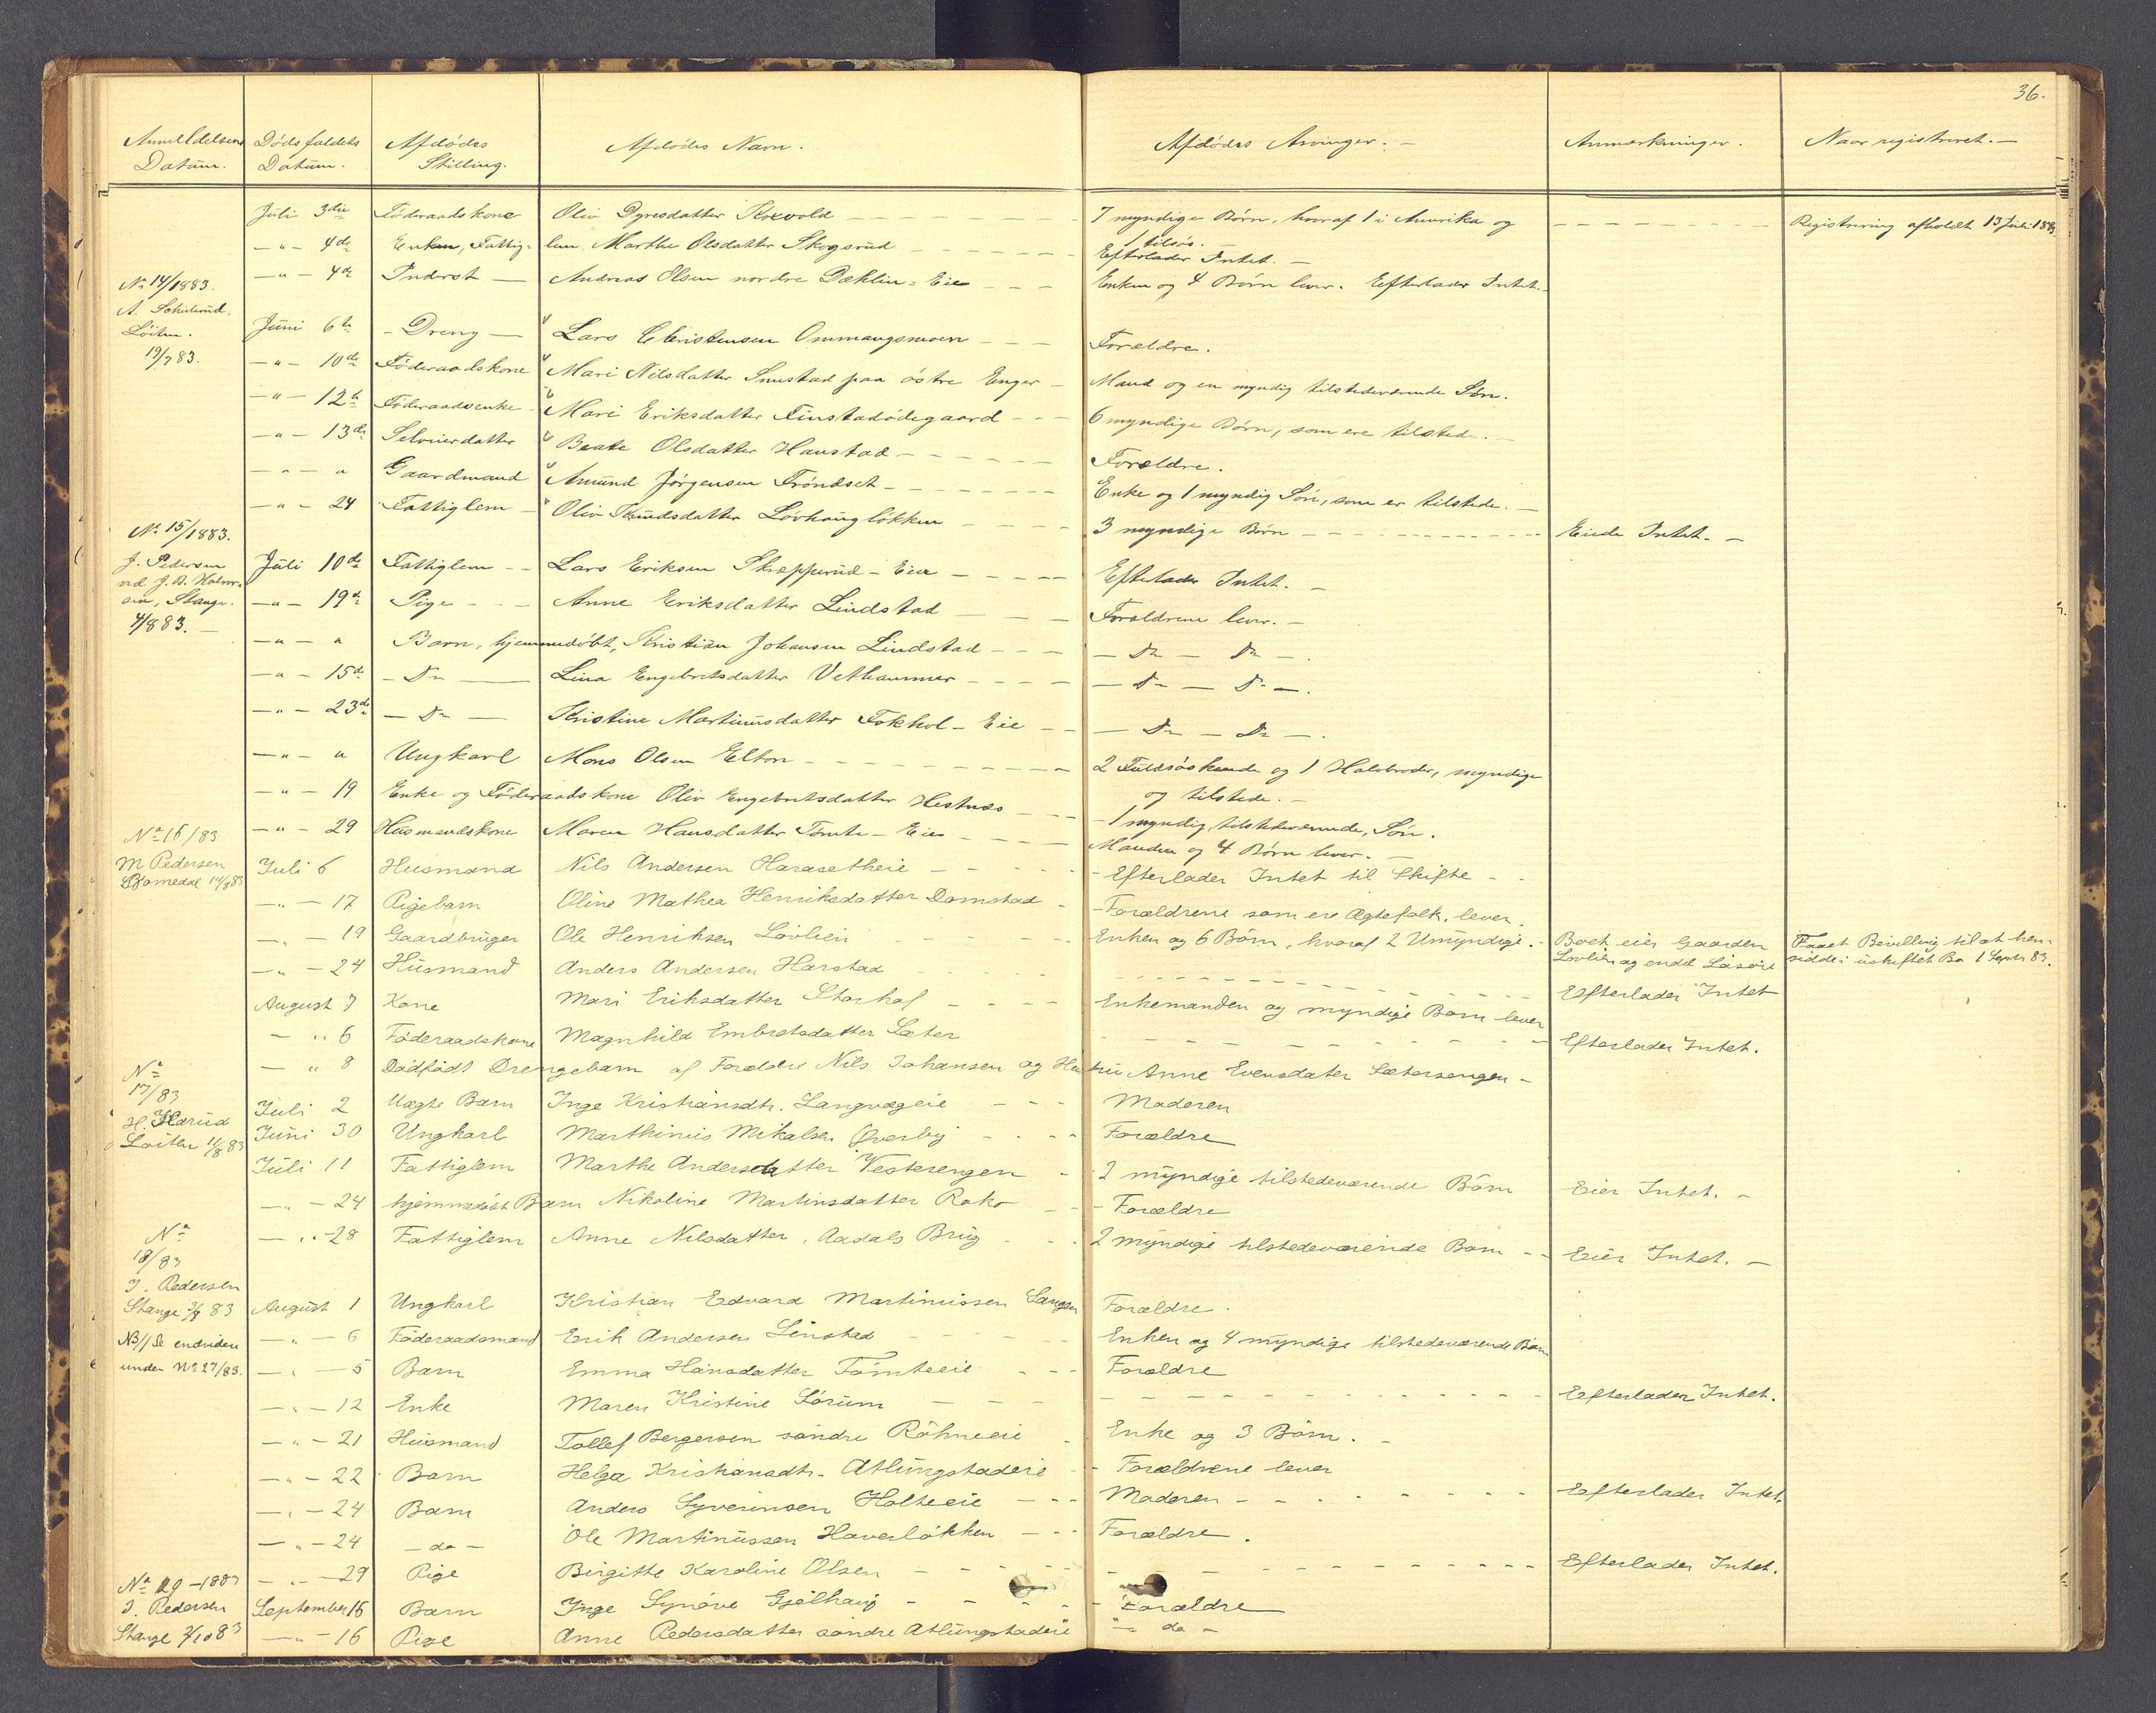 36.
Anmeldelsens Datum. Dødsfaldets Datum. Afdødes Stilling. Afdødes Navn. Afdødes Arvinger. — Anmærkninger. Naar registreret. —
Juli 3die Føderaadskone Oliv Dyresdatter 7 myndige Børn, hvoraf 1 i Amerika og 1 tilsøs. Registrering afholdt 13 Juli 1883
— " — 4de Enken, Fattiglem, Marthe Olsdatter Skogsrud Efterlader Intet. —
— " — 4de Inderst — Andreas Olsen nordre Dæhlin = Eie Enken og 4 Børn lever. Efterlader Intet.
No 14/1883.
A. Løiten. 19/7 83.
Juni 6te Dreng — Lars Christensen Ommangsmoen Forældre.
— " — 10de Føderaadskone Mari Nilsdatter Snustad paa østre Enger Mand og en myndig tilstedeværende Søn.
— " — 12te Føderaadsenke Mari Eriksdatter Finstadødegaard 6 myndige Børn, som ere tilstede. —
— " — 13de Selveierdatter Beate Olsdatter Haustad Forældre.
— " — " Gaardmand Amund Jørgensen Frøndset Enke og 1 myndig Søn, som er tilstede. —
— " — 24 Fattiglem Oliv Knudsdatter Løvhauglökken 3 myndige Børn Eiede Intet. —
No 15/1883.
J. Pedersen ved J. B. Halvorsen, Stange. 4/8 83. —
Juli 10de Fattiglem Lars Eriksen Skræpperud - Eie Efterlader Intet. —
— " — 19de Pige Anne Eriksdatter Lindstad Forældrene lever. —
— " — " Barn, hjemmedøbt, Kristian Johansen Lindstad — Do — Do —.
— " — 15de — Do — Lina Engebretsdatter Vethammer — Do — Do —.
— " — 23de — Do — Kristine Martinusdatter Fokhol - Eie — Do — Do —.
— " — " Ungkarl Mons Olsen Elton 2 Fuldsøskende og 1 Halvbroder, myndige og tilstede. —
— " — 19 Enke og Føderaadskone Oliv Engebretsdatter Hestnæs 1 myndig, tilstedeværende, Søn.
— " — 29 Husmandskone Maren Hansdatter Tomte - Eie Manden og 4 Børn lever. —
No 16/83
M Pedersen Romedal 14/8 83
Juli 6 Husmand Nils Andersen Harasetheie Efterlader Intet til Skifte
— " — 17 Pigebarn Oline Mathea Henriksdatter Domstad Forældrene som ere Ægtefolk, lever.
— " — 19 Gaardbruger Ole Henriksen Løvlien Enken og 6 Børn, hvoraf 2 Umyndige. Boet eier Gaarden Løvlien og endel Løsøre Faaet Bevilling til at hensidde i uskiftet Bo 1 Septr 83.
— " — 24 Husmand Anders Andersen Harstad Efterlader Intet
August 7 Kone Mari Eriksdatter Storhof Enkemanden og myndige Børn lever
— " 6 Føderaadskone Magnhild Embretsdatter Sæter Efterlader Intet.
— " 8 Dødfødt Drengebarn af Forældre Nils Johansen og Hustru Anne Evensdater Sætersengen —
No 17/83
H. Harud Løiten 11/8 83
Juli 2 Uægte Barn Inge Kristiansdtr. Langvægeie Moderen
Juni 30 Ungkarl Marthinius Mikalsen Øverby Forældre
Juli 11 Fattiglem Marthe Andersdatter Vesterengen 2 myndige tilstedeværende Børn Eier Intet. —
— " — 24 hjemmedøbt Barn Nikoline Martinsdatter Roko Forældre
— " - 28 Fattiglem Anne Nilsdatter, Aadals Brug 2 myndige tilstedeværende Børn Eier Intet. —
No 18/83
J. Pedersen Stange 3/9 83
NB// Se endvidere under No 27/83.
August 1 Ungkarl Kristian Edvard Martinussen Langen Forældre.
— " — 6 Føderaadsmand Erik Andersen Linstad Enken og 4 myndige tilstedeværende Børn
— " — 5 Barn Emma Hansdatter Tömteeie Forældre
— " — 12 Enke Maren Kristine Sörum Efterlader Intet.
— " — 21 Husmand Tollef Bergersen söndre Röhneeie Enke og 3 Börn.
— " — 22 Barn Helga Kristiansdtr. Atlungstadeie Forældrene lever
— " — 24 Barn Anders Syverinsen Holteeie Moderen Efterlader Intet.
— " — 24 — do — Ole Martinussen Haverløkken Forældre.
— " — 29 Pige Birgitte Karoline Olsen Efterlader Intet.
No 19 - 1883
J. Pedersen Stange 2/10 83
September 15 Barn Inge Synøve Gjølhaug Forældre
— " — 16 Pige Anne Pedersdatter søndre Atlungstadeie — do —